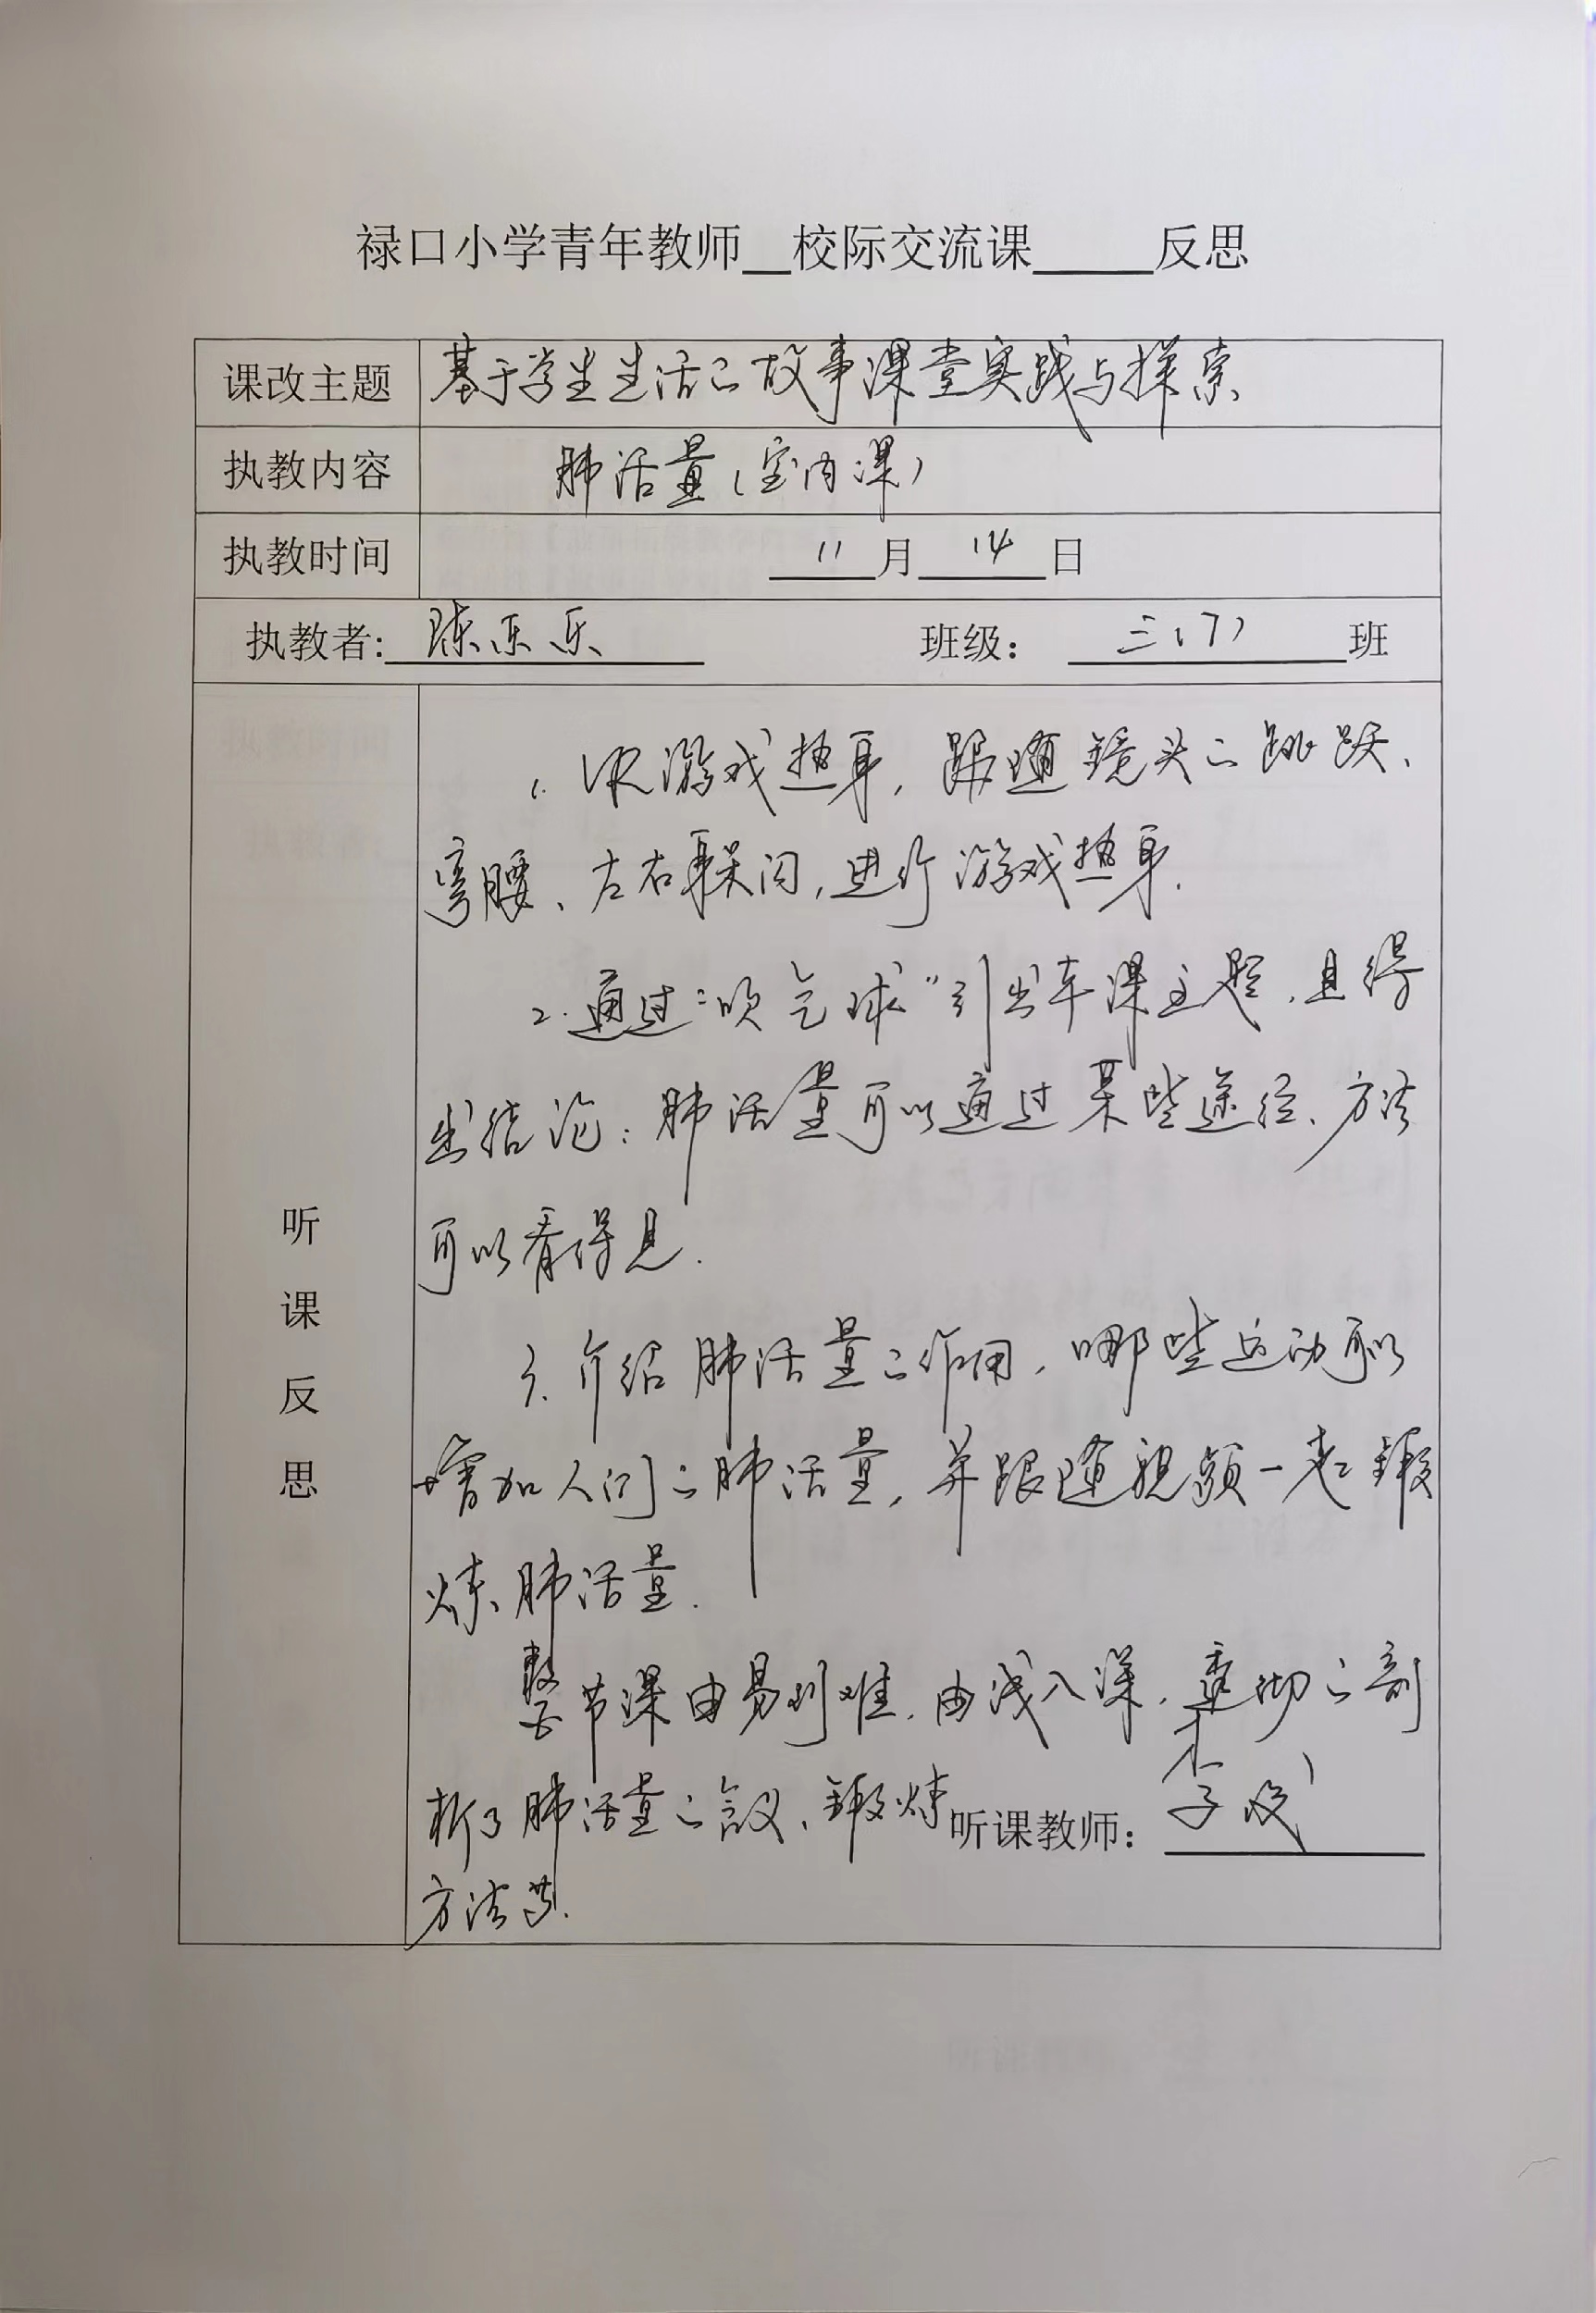 禄口小学青年教师__校际交流课_____反思
课改主题 基于学生生活的故事课堂实践与探索
执教内容 肺活量(室内课)
执教时间 11月14日
执教者: 陈乐乐 班级: 三(7)班
听课反思
1. VR游戏热身,跟随镜头的跳跃、
弯腰、左右躲闪,进行游戏热身.
2. 通过“吹气球”引出本课主题,且得
出结论:肺活量可以通过某些途径、方法
可以看得见.
3. 介绍肺活量的作用,哪些运动可以
增加人们的肺活量,并跟随视频一起锻
炼肺活量.
整节课由易到难,由浅入深,透彻的剖
析了肺活量的含义、锻炼
听课教师: 李
方法等.